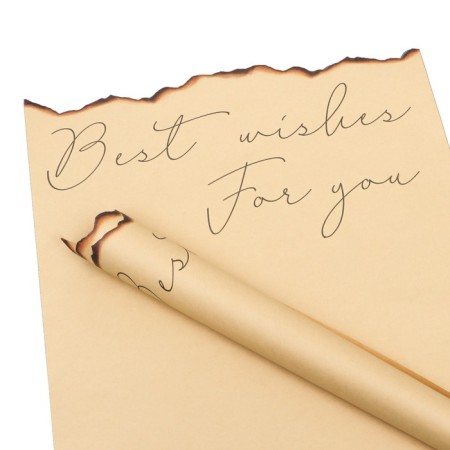 Best wishes
For you